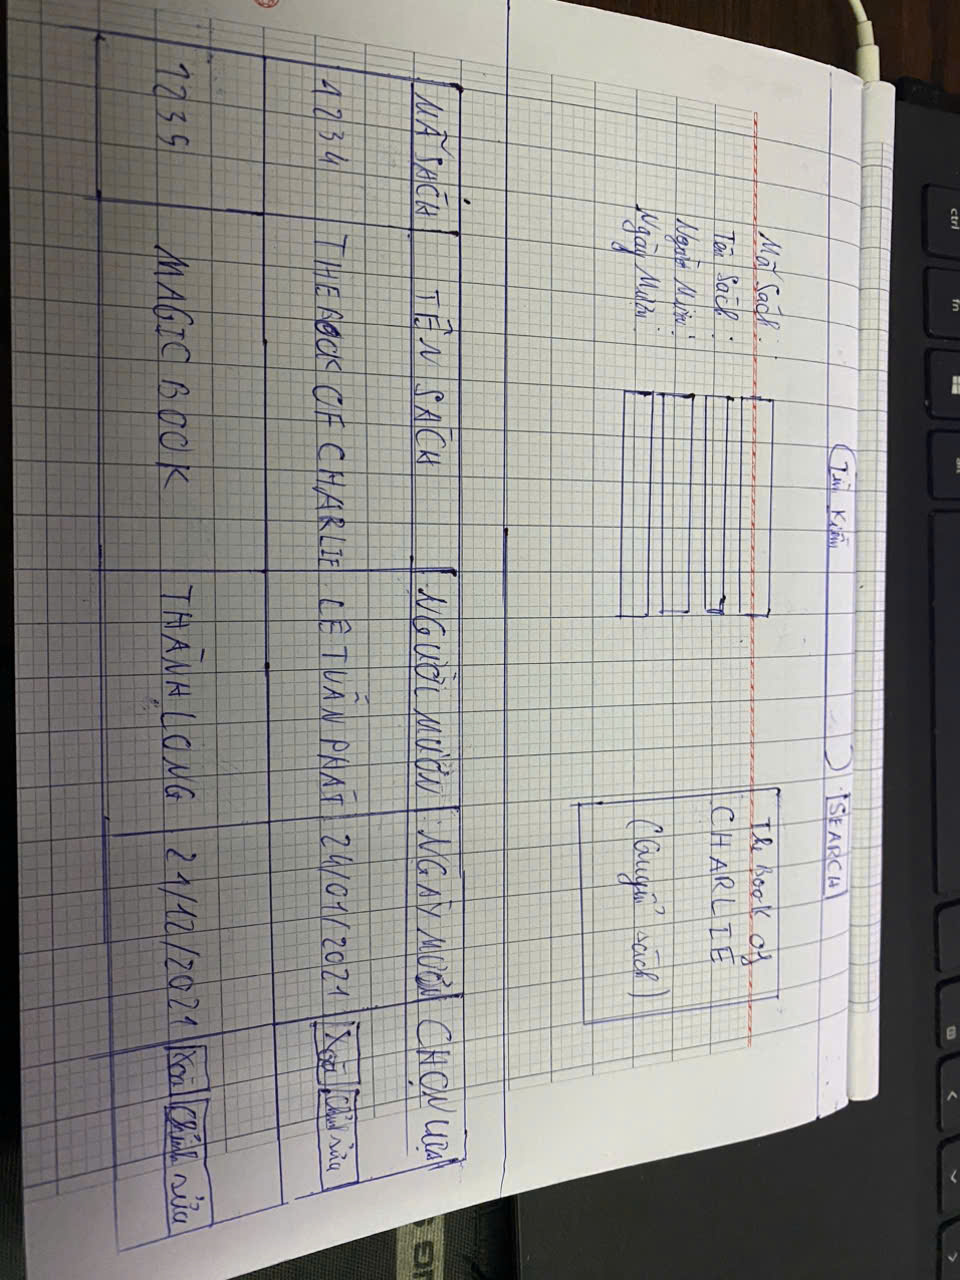 Tìm kiếm
SEARCH
Mã Sách:
Tên Sách:
Người Mượn:
Ngày Mượn:
The Book of
CHARLIE
(Quyển sách)
MÃ SÁCH TÊN SÁCH NGƯỜI MƯỢN NGÀY MƯỢN CHỌN LỰA
1234 THE BOOK OF CHARLIE LÊ TUẤN PHÁT 24/01/2021 Xoá Chỉnh sửa
1235 MAGIC BOOK THÀNH LONG 21/12/2021 Xoá Chỉnh sửa
ctrl
fn